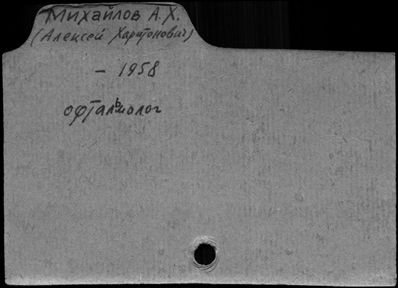 Михайлов А.Х.
(Алексей Харитонович)
- 1958
офтальмолог